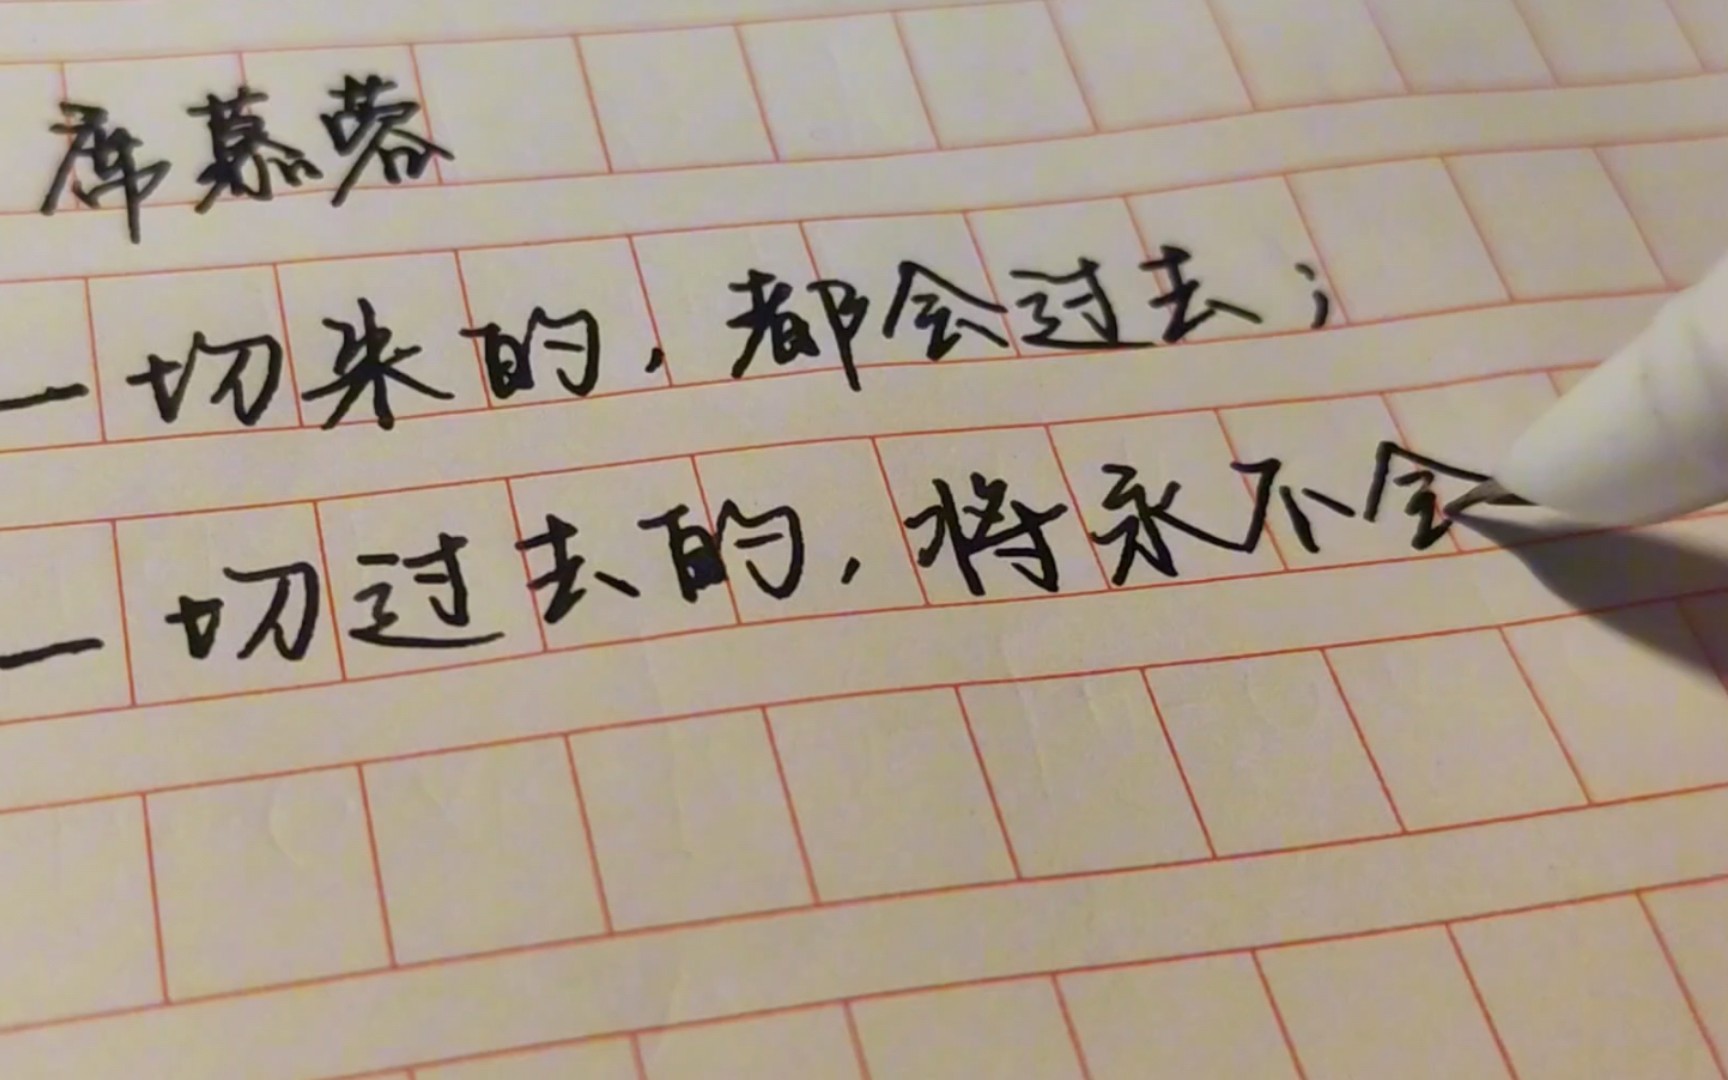 席慕蓉
一切来的，都会过去；
一切过去的，将永不会